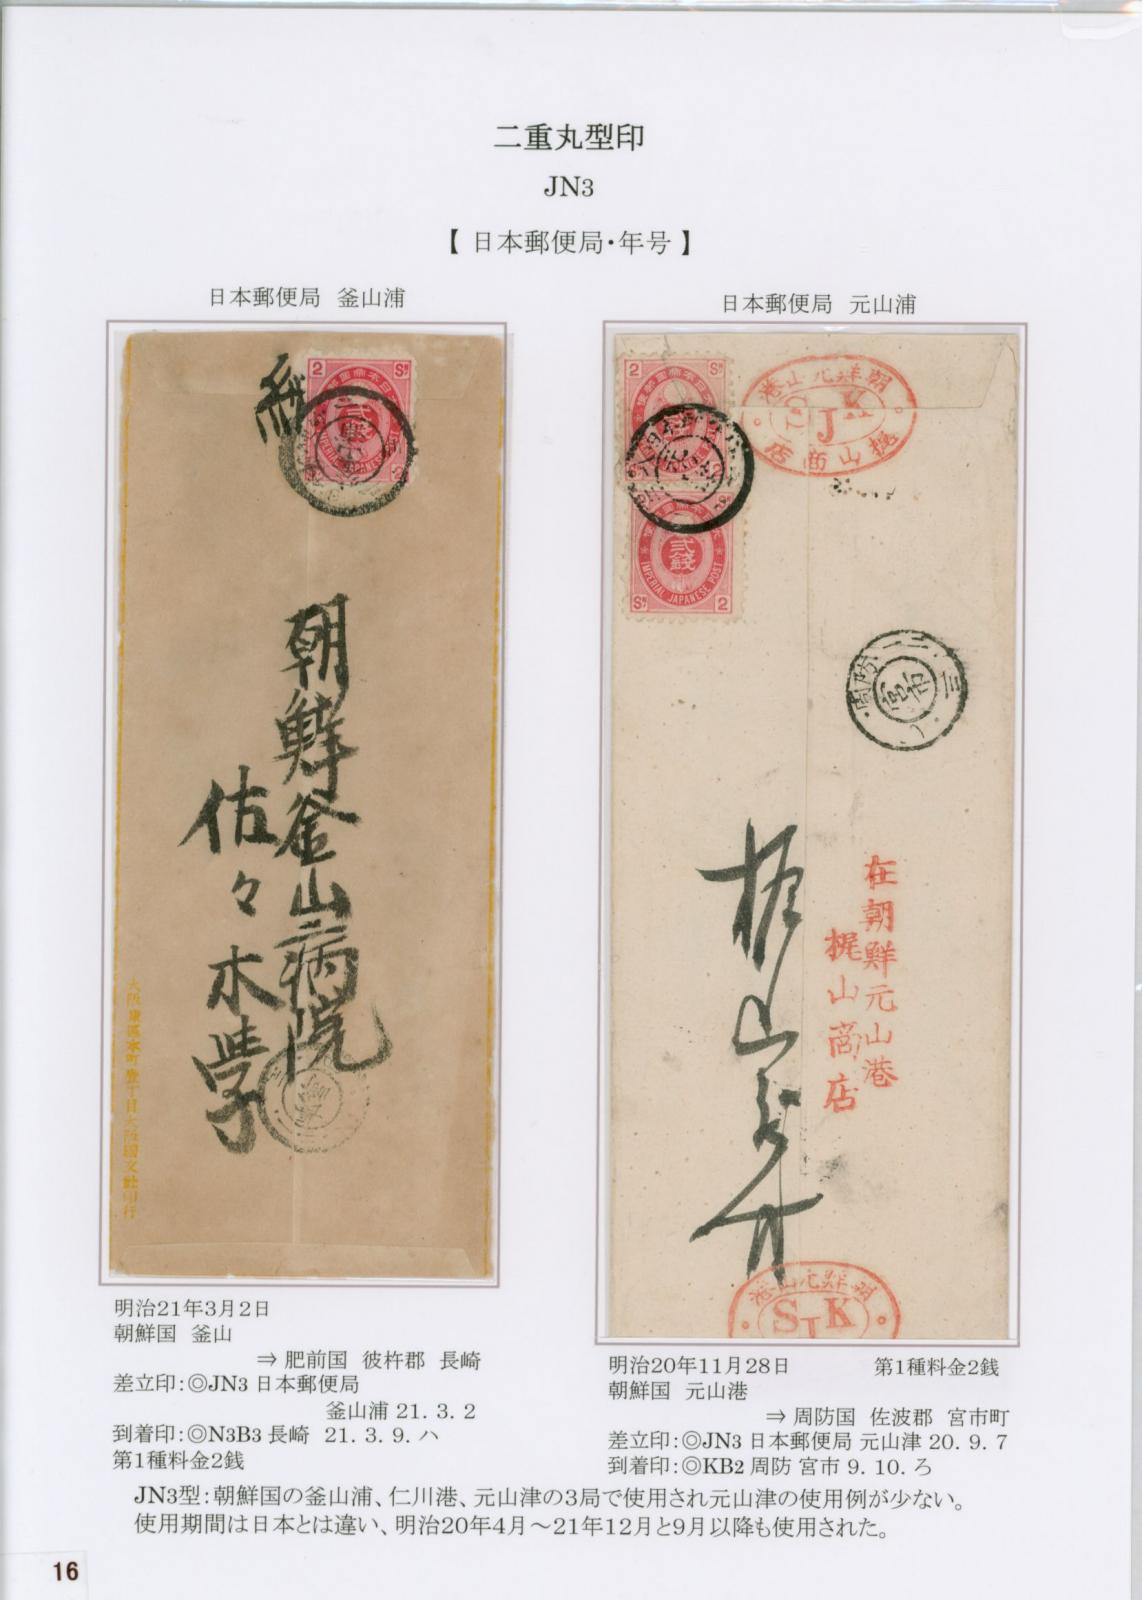 二重丸型印
JN3
【 日本郵便局・年号 】
日本郵便局 釜山浦
2 Sⁿ
IMPERIAL JAPANESE
緘
朝鮮釜山病院
佐々木学
大阪東區本町壹丁目大阪國文社印行
明治21年3月2日
朝鮮国 釜山
⇒ 肥前国 彼杵郡 長崎
差立印：◎JN3 日本郵便局
釜山浦 21. 3. 2
到着印：◎N3B3 長崎 21. 3. 9. ハ
第1種料金2銭
日本郵便局 元山浦
2 Sⁿ
貳錢
IMPERIAL JAPANESE POST
Sⁿ 2
朝鮮元山港
SJK
梶山商店
周防
宮市
在朝鮮元山港
梶山商店
朝鮮元山港
SJK
明治20年11月28日 第1種料金2銭
朝鮮国 元山港
⇒ 周防国 佐波郡 宮市町
差立印：◎JN3 日本郵便局 元山津 20. 9. 7
到着印：◎KB2 周防 宮市 9. 10. ろ
JN3型：朝鮮国の釜山浦、仁川港、元山津の3局で使用され元山津の使用例が少ない。
使用期間は日本とは違い、明治20年4月～21年12月と9月以降も使用された。
16